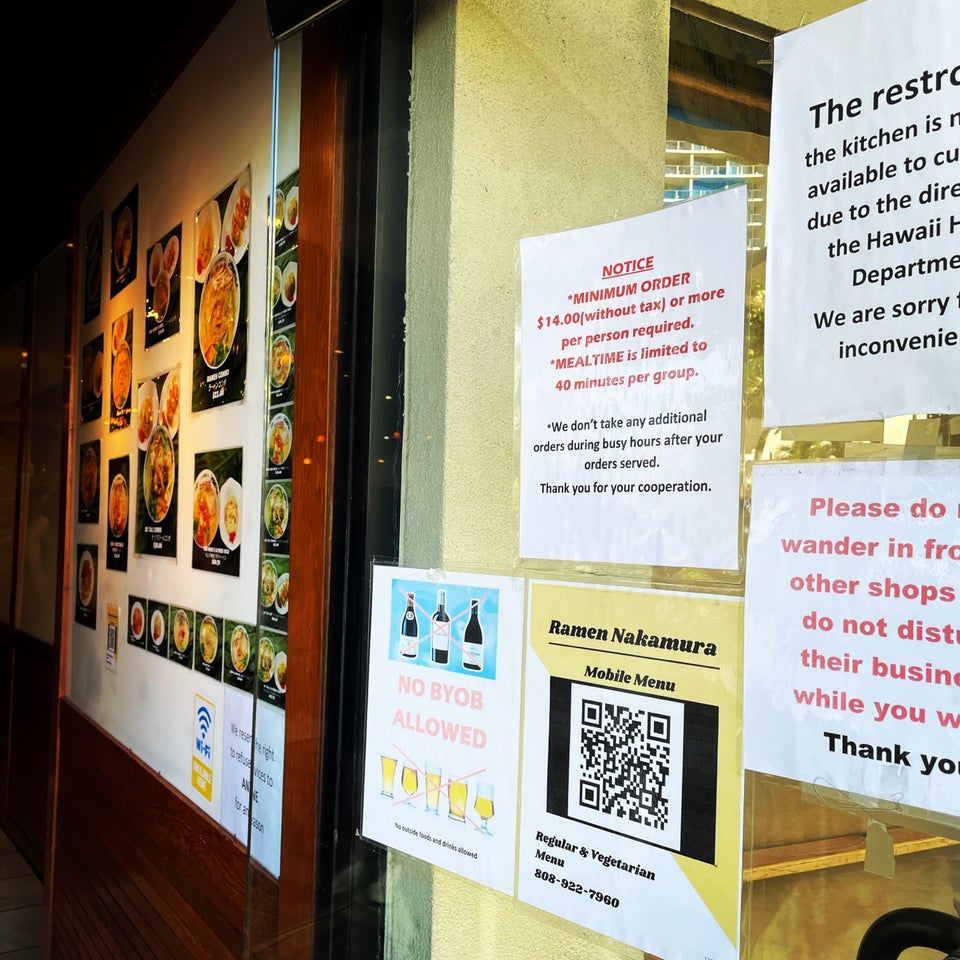 NOTICE
*MINIMUM ORDER
$14.00(without tax) or more
per person required.
*MEALTIME is limited to
40 minutes per group.
*We don't take any additional
orders during busy hours after your
orders served.
Thank you for your cooperation.
The restro
the kitchen is n
available to cu
due to the dire
the Hawaii H
Departme
We are sorry f
inconvenie
Please do n
wander in fro
other shops
do not distu
their busine
while you w
Thank you
NO BYOB
ALLOWED
No outside foods and drinks allowed
Ramen Nakamura
Mobile Menu
Regular & Vegetarian
Menu
808-922-7960
RAMEN COMBO
Wi-Fi
AVAILABLE
HERE
We reserve the right
to refuse services to
for any reason